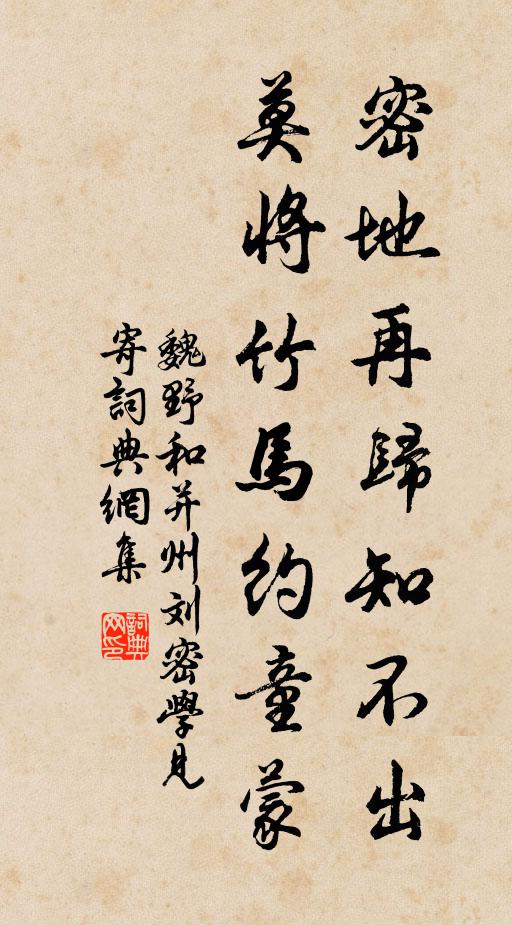 密地再歸知不出
莫將竹馬約童蒙
魏野和并州刘密學見
寄詞典網集
詞典
网印